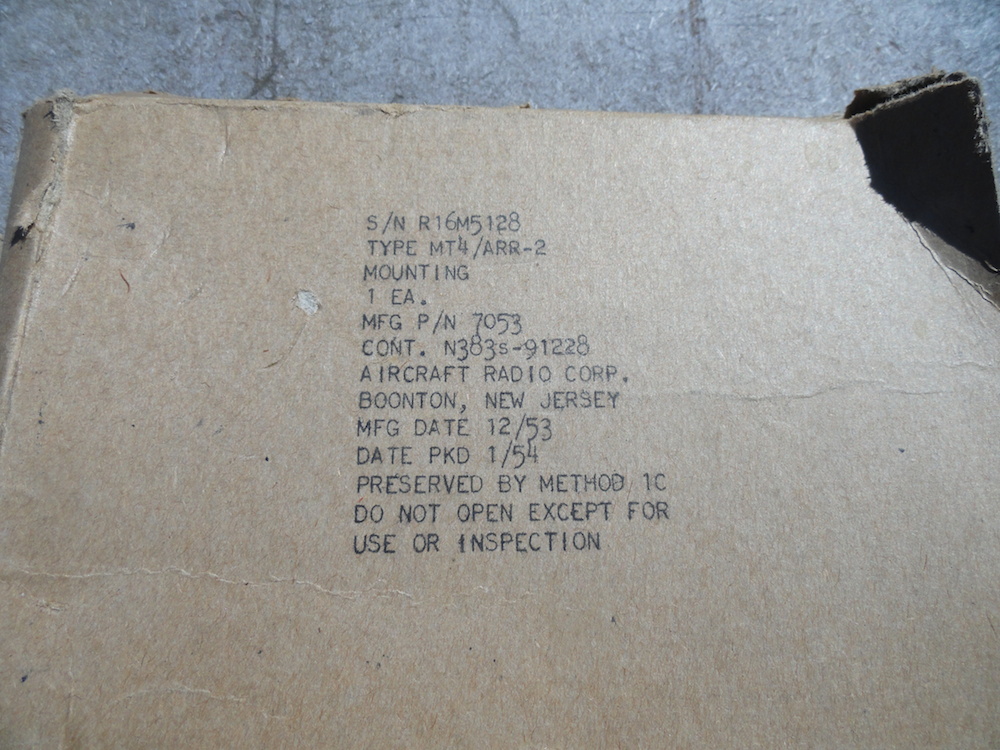 S/N R16M5128
TYPE MT4/ARR-2
MOUNTING
1 EA.
MFG P/N 7053
CONT. N383s-91228
AIRCRAFT RADIO CORP.
BOONTON, NEW JERSEY
MFG DATE 12/53
DATE PKD 1/54
PRESERVED BY METHOD 1C
DO NOT OPEN EXCEPT FOR
USE OR INSPECTION